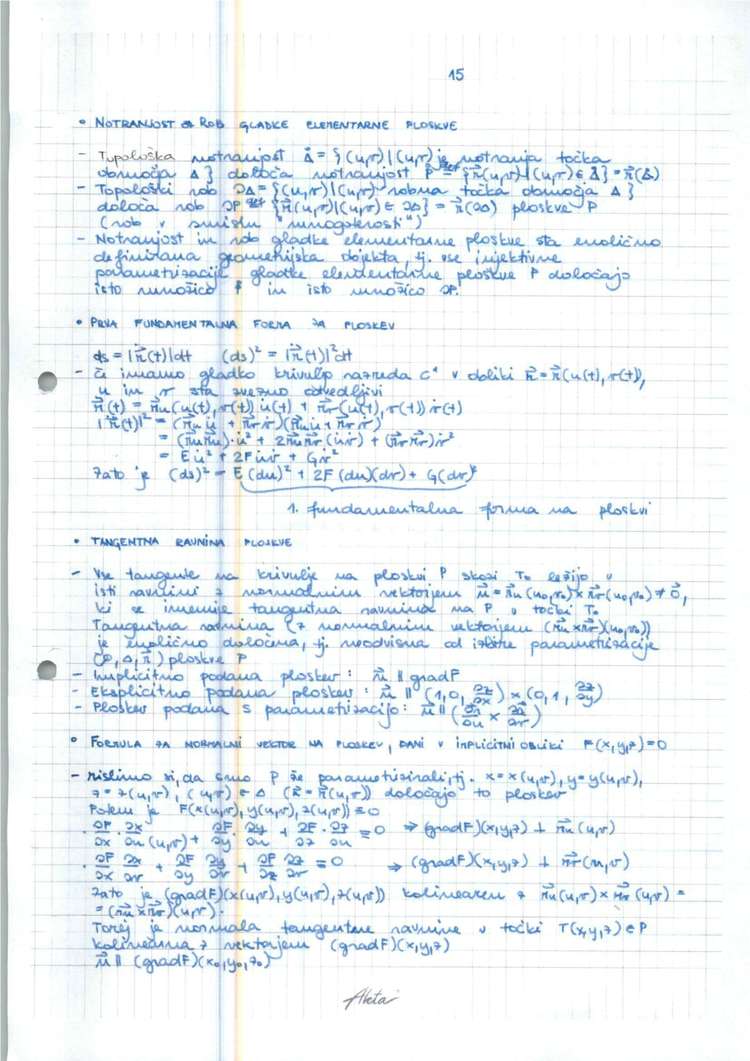 15
• NOTRANJOST & ROB GLADKE ELEMENTARNE PLOSKVE
- Topološka notranjost Δ̊ = {(u,v)|(u,v) je notranja točka
območja Δ} določa notranjost P̊ def= {r⃗(u,v)|(u,v) ∈ Δ̊} = r⃗(Δ̊)
- Topološki rob ∂Δ = {(u,v)|(u,v) robna točka območja Δ}
določa rob ∂P def= {r⃗(u,v)|(u,v) ∈ ∂Δ} = r⃗(∂Δ) ploskve P
(rob v smislu "mnogoterosti")
- Notranjost in rob gladke elementarne ploskve sta enolično
definirana geometrijska objekta, tj. vse injektivne
parametrizacije gladke elementarne ploskve P določajo
isto množico P̊ in isto množico ∂P.
• PRVA FUNDAMENTALNA FORMA ZA PLOSKEV
ds = |ṙ⃗(t)|dt (ds)² = |ṙ⃗(t)|²dt
- Če imamo gladko krivuljo razreda C¹ v obliki r⃗ = r⃗(u(t), v(t)),
u in v sta zvezno odvedljivi
ṙ⃗(t) = r⃗u(u(t), v(t)) u̇(t) + r⃗v(u(t), v(t)) v̇(t)
|ṙ⃗(t)|² = (r⃗u u̇ + r⃗v v̇)(r⃗u u̇ + r⃗v v̇)
= (r⃗u r⃗u)·u̇² + 2r⃗u r⃗v (u̇v̇) + (r⃗v r⃗v)v̇²
= Eu̇² + 2Fu̇v̇ + Gv̇²
Zato je (ds)² = E(du)² + 2F(du)(dv) + G(dv)²
1. fundamentalna forma na ploskvi
• TANGENTNA RAVNINA PLOSKVE
- Vse tangente na krivulje na ploskvi P skozi T₀ ležijo v
isti ravnini z normalnim vektorjem n⃗ = r⃗u(u₀,v₀) × r⃗v(u₀,v₀) ≠ 0⃗,
ki se imenuje tangentna ravnina na P v točki T₀
Tangentna ravnina (z normalnim vektorjem (r⃗u × r⃗v)(u₀,v₀))
je enolično določena, tj. neodvisna od izbire parametrizacije
(P, Δ, r⃗) ploskve P
- Implicitno podana ploskev: n⃗ ∥ gradF
- Eksplicitno podana ploskev: n⃗ ∥ (1, 0, ∂z/∂x) × (0, 1, ∂z/∂y)
- Ploskev podana s parametrizacijo: n⃗ ∥ (∂r⃗/∂u × ∂r⃗/∂v)
• FORMULA ZA NORMALNI VEKTOR NA PLOSKEV, DANI V IMPLICITNI OBLIKI F(x,y,z)=0
- Mislimo si, da smo P že parametrizirali, tj. x = x(u,v), y = y(u,v),
z = z(u,v), (u,v) ∈ Δ (r⃗ = r⃗(u,v)) določajo to ploskev
Potem je F(x(u,v), y(u,v), z(u,v)) ≡ 0
∂F/∂x · ∂x/∂u (u,v) + ∂F/∂y · ∂y/∂u + ∂F/∂z · ∂z/∂u ≡ 0 ⇒ (gradF)(x,y,z) ⊥ r⃗u(u,v)
∂F/∂x ∂x/∂v + ∂F/∂y ∂y/∂v + ∂F/∂z ∂z/∂v ≡ 0 ⇒ (gradF)(x,y,z) ⊥ r⃗v(u,v)
Zato je (gradF)(x(u,v), y(u,v), z(u,v)) kolinearen z r⃗u(u,v) × r⃗v(u,v) =
= (r⃗u × r⃗v)(u,v).
Torej je normala tangentne ravnine v točki T(x,y,z) ∈ P
kolinearna z vektorjem (gradF)(x,y,z)
n⃗ ∥ (gradF)(x₀,y₀,z₀)